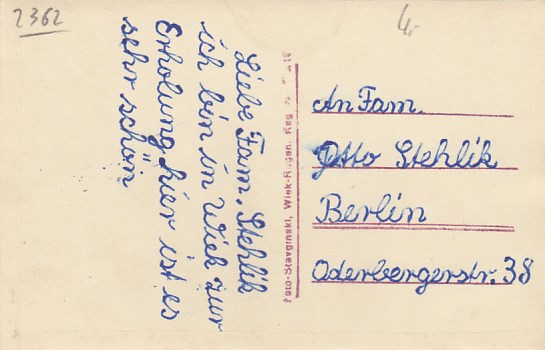 2362
4,-
Liebe Fam. Stehlik
ich bin in Wiek zur
Erholung hier ist es
sehr schön
Foto-Stavginski, Wiek-Rügen.
An Fam.
Otto Stehlik
Berlin
Oderbergerstr. 38